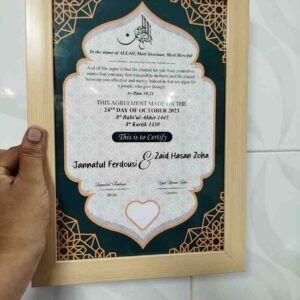 In the name of ALLAH, Most Gracious, Most Merciful
And of His signs is that He created for you from yourselves
mates that you may find tranquility in them; and He placed
between you affection and mercy. Indeed in that are signs for
a people who give thought.
Ar-Rum 30:21
THIS AGREEMENT MADE ON THE
24TH DAY OF OCTOBER 2023
8th Rabi'ul-Akhir 1445
8th Kartik 1430
This is to Certify
Jannatul Ferdousi & Zaid Hasan Zoha